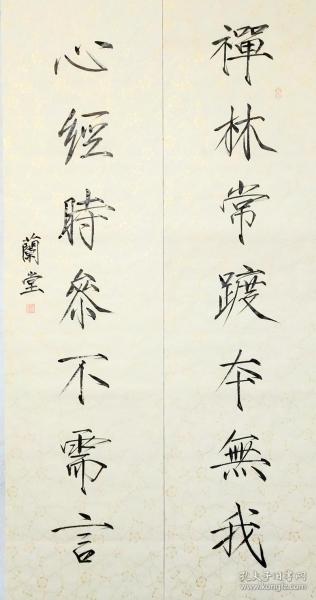 禪林常踱本無我
心經時參不需言
蘭堂
孔夫子旧书网